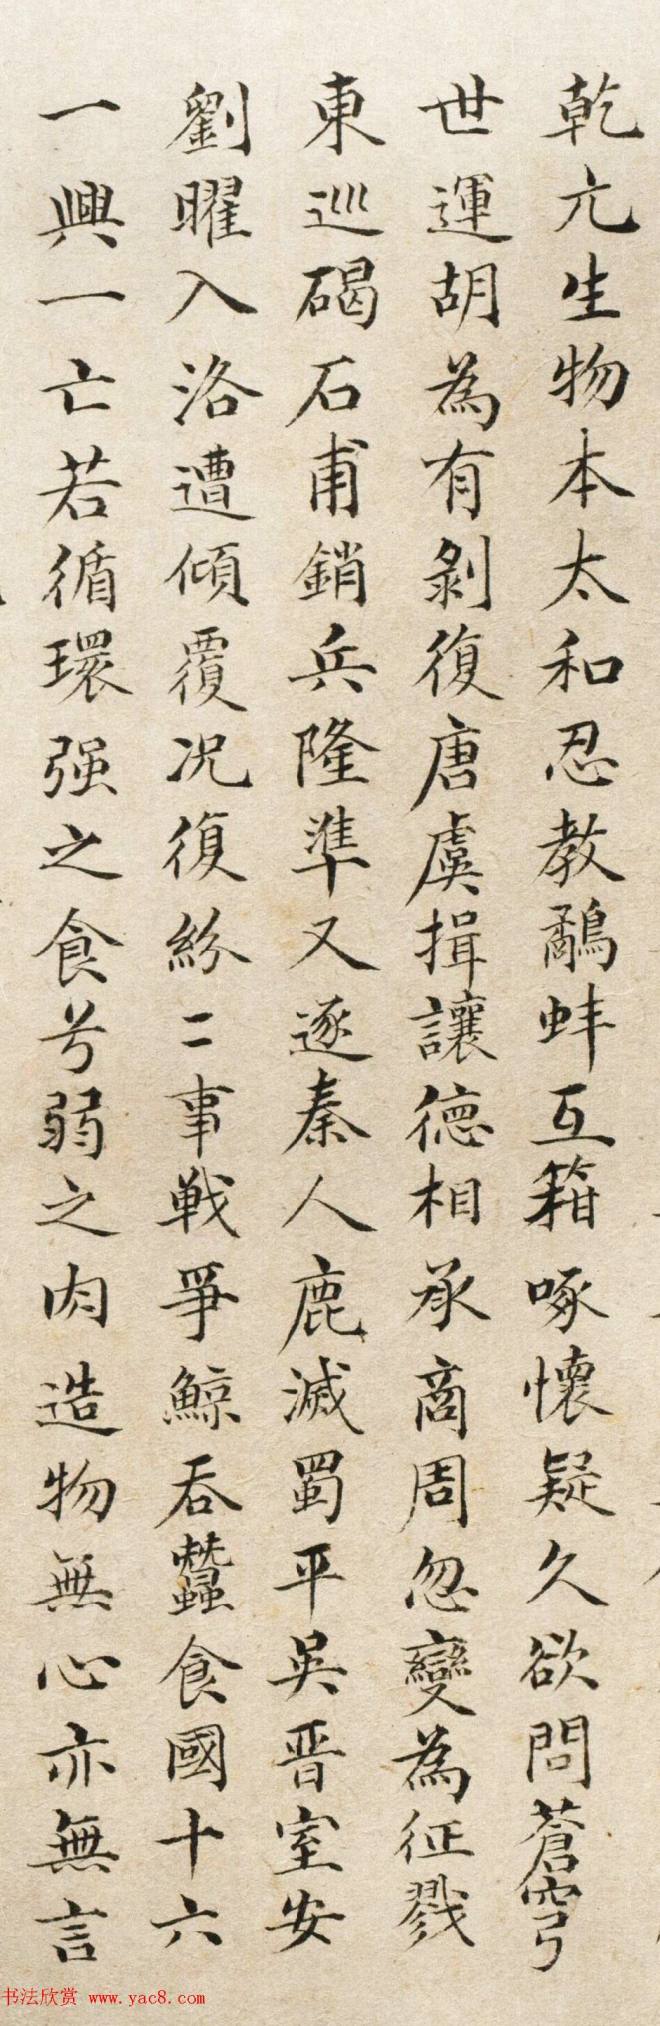 乾亢生物本太和忍教鷸蚌互籍啄懷疑久欲問蒼穹
世運胡為有剝復唐虞揖讓德相承商周忽變為征戮
東巡碣石甫銷兵隆準又逐秦人鹿滅蜀平吳晋室安
劉曜入洛遭傾覆况復紛二事戰爭鯨吞蠶食國十六
一興一亡若循環强之食兮弱之肉造物無心亦無言
书法欣赏 www.yac8.com